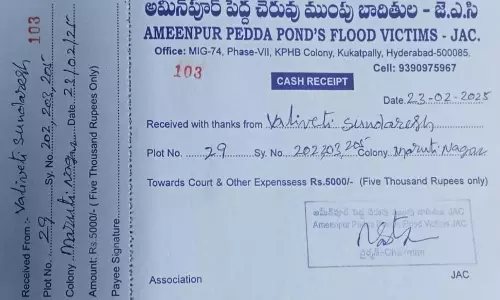 అమీన్‌పూర్ పెద్ద చెరువు ముంపు బాదితుల - జె.ఎ.సి
AMEENPUR PEDDA POND'S FLOOD VICTIMS - JAC.
Office: MIG-74, Phase-VII, KPHB Colony, Kukatpally, Hyderabad-500085.
103
Cell: 9390975967
CASH RECEIPT
Date. 23-02-2025
Received with thanks from Valiveti Sundaresh
Plot No. 29 Sy. No. 202,203, 205 Colony Maruti Nagar
Towards Court & Other Expenssess Rs.5000/- (Five Thousand Rupees only)
అమీన్‌పూర్ పెద్ద చెరువు ముంపు బాదితుల JAC
Ameenpur Pedda Flood Victims-JAC
ఛైర్మన్-Chairman
Association
JAC
103
Received From : Valiveti Sundaresh
Plot No. 29 Sy. No. 202, 203, 205
Colony Maruti Nagar Date. 23/02/25
Amount: Rs 5000/- ( Five Thousand Rupees Only)
Payee Signature